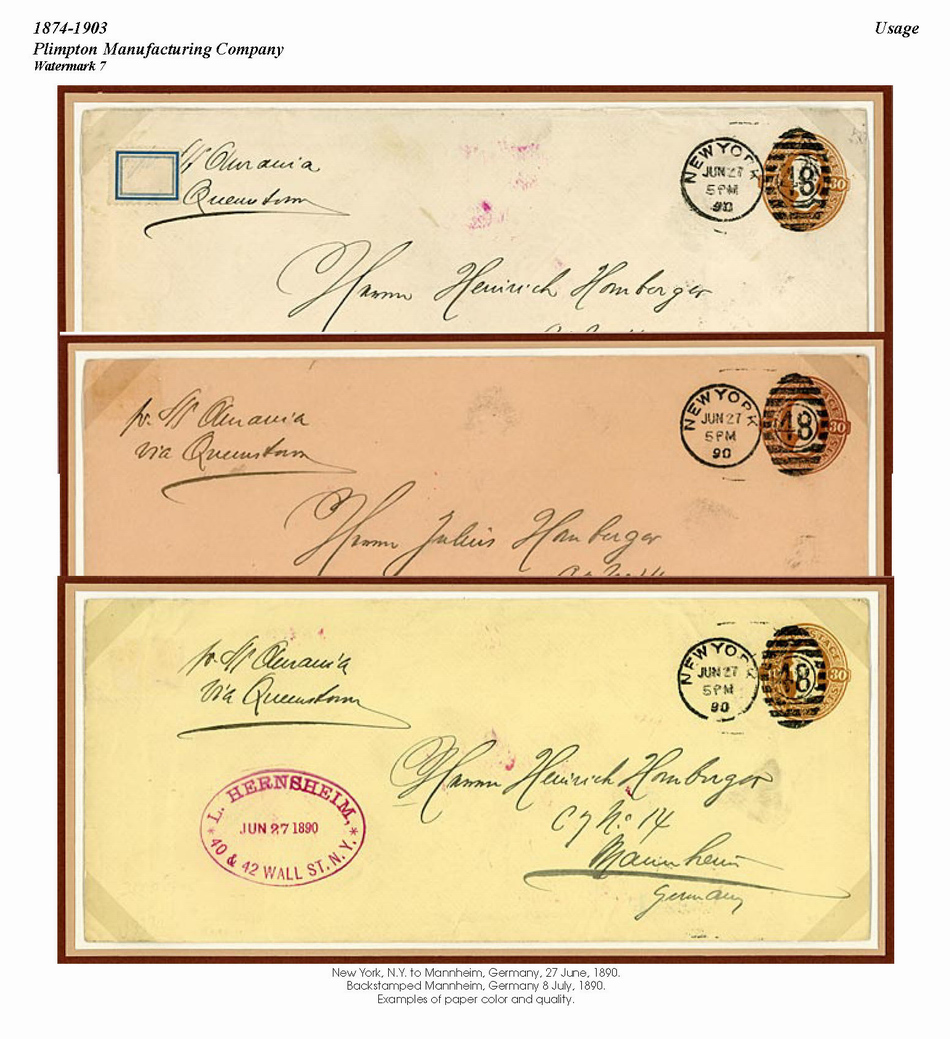 1874-1903
Usage
Plimpton Manufacturing Company
Watermark 7
SS Aurania
Queenstown
NEW YORK
JUN 27
5 PM
90
48
30
Herrn Heinrich Homberger
pr. SS Aurania
via Queenstown
NEW YORK
JUN 27
5 PM
90
48
POSTAGE
30
CENTS
Herrn Julius Homberger
pr. SS Aurania
via Queenstown
NEW YORK
JUN 27
5 PM
90
48
POSTAGE
30
CENTS
Herrn Heinrich Homberger
C 7 No. 14
Mannheim
Germany
L. HERNSHEIM,
JUN 27 1890
* 40 & 42 WALL ST. N.Y. *
New York, N.Y. to Mannheim, Germany, 27 June, 1890.
Backstamped Mannheim, Germany 8 July, 1890.
Examples of paper color and quality.